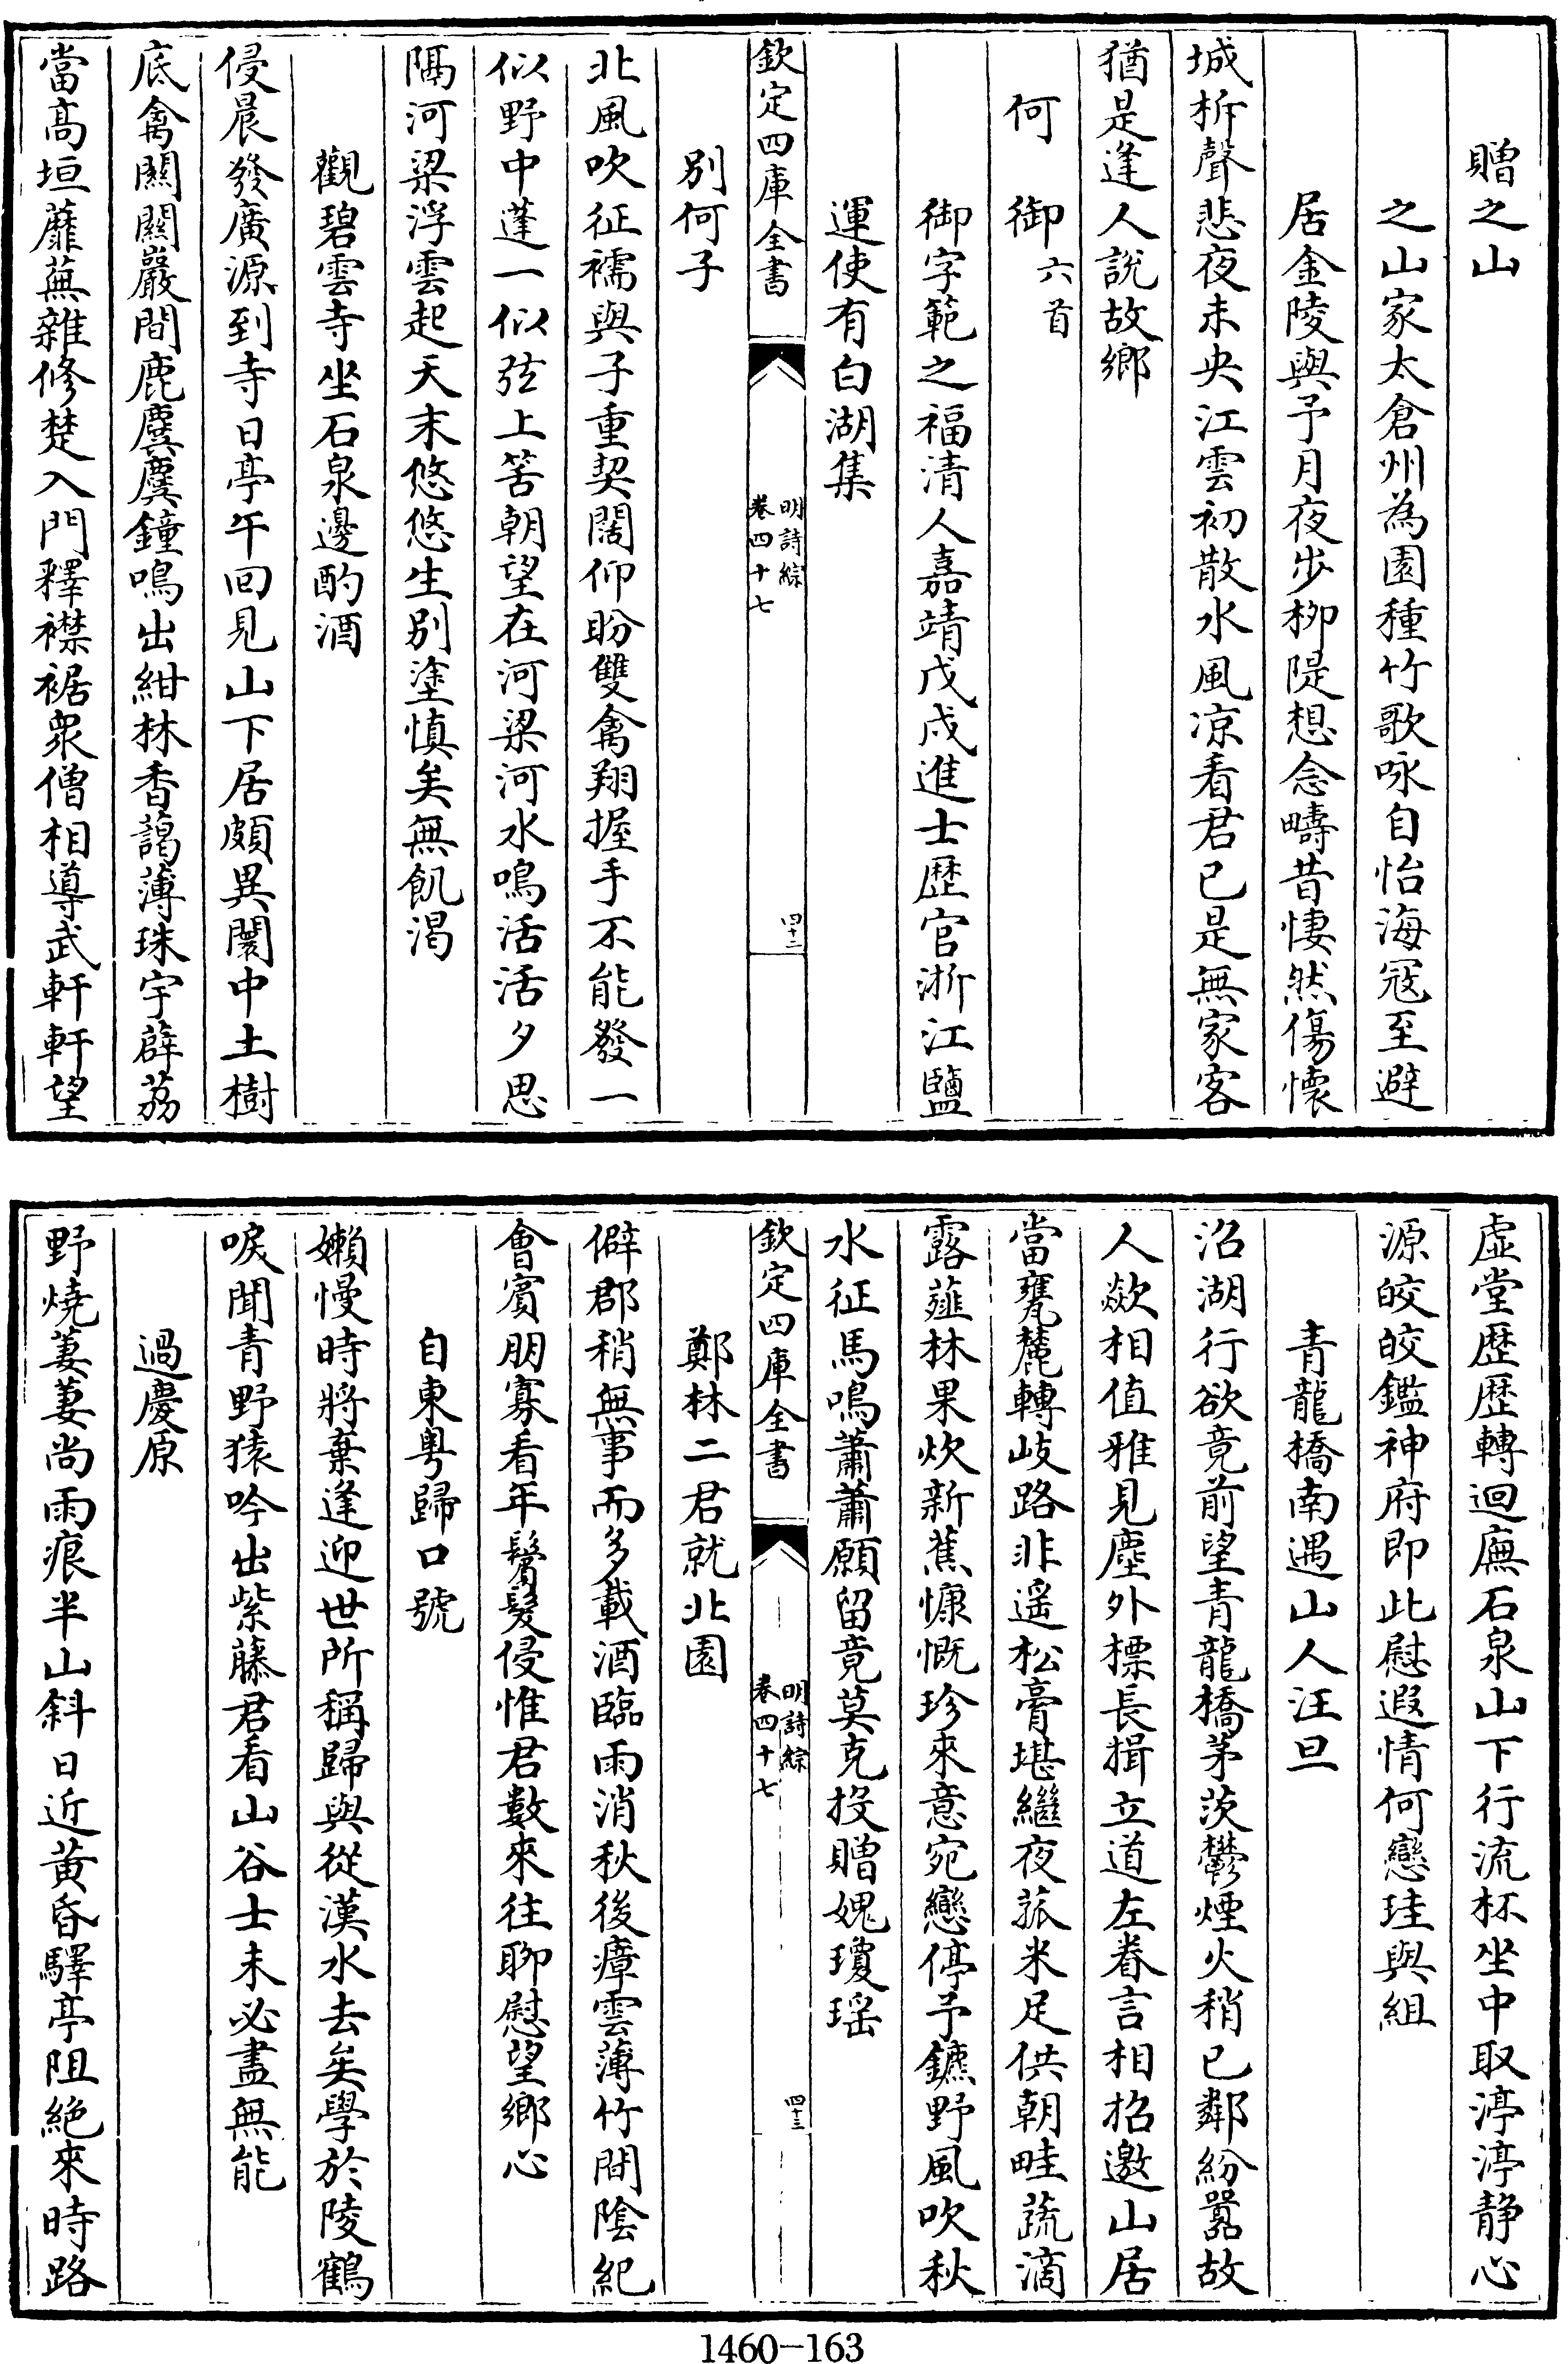 贈之山
之山家太倉州為園種竹歌咏自怡海冦至避
居金陵與予月夜步柳隄想念疇昔悽然傷懷
城柝聲悲夜未央江雲初散水風凉看君已是無家客
猶是逢人說故鄉
何御六首
御字範之福清人嘉靖戊戌進士歴官浙江鹽
運使有白湖集
欽定四庫全書
明詩綜
卷四十七
四十二
別何子
北風吹征襦與子重契闊仰盼雙禽翔握手不能發一
似野中蓬一似弦上筈朝望在河梁河水鳴活活夕思
隔河梁浮雲起天末悠悠生別塗慎矣無飢渴
觀碧雲寺坐石泉邊酌酒
侵晨發廣源到寺日亭午回見山下居頗異闤中土樹
底禽關關巖間鹿麌麌鐘鳴出紺林香藹薄珠宇薜荔
當高垣蘼蕪雜修楚入門釋襟裾衆僧相導武軒軒望
虛堂歴歴轉迴廡石泉山下行流杯坐中取渟渟靜心
源皎皎鑑神府即此慰遐情何戀珪與組
青龍橋南遇山人汪旦
沿湖行欲竟前望青龍橋茅茨鬱煙火稍已鄰紛嚣故
人歘相值雅見塵外標長揖立道左眷言相招邀山居
當甕麓轉岐路非遥松膏堪繼夜菰米足供朝畦蔬滴
露薤林果炊新蕉慷慨珍來意宛戀停予鑣野風吹秋
水征馬鳴蕭蕭願留竟莫克投贈媿瓊瑶
欽定四庫全書
明詩綜
卷四十七
四十三
鄭林二君就北園
僻郡稍無事而多載酒臨雨消秋後瘴雲薄竹間陰紀
會賓朋寡看年鬢髮侵惟君數來往聊慰望鄉心
自東粤歸口號
嬾慢時將棄逢迎世所稱歸與從漢水去矣學於陵鶴
唳聞青野猿吟出紫藤君看山谷士未必盡無能
過慶原
野燒萋萋尚雨痕半山斜日近黃昏驛亭阻絶來時路
1460-163